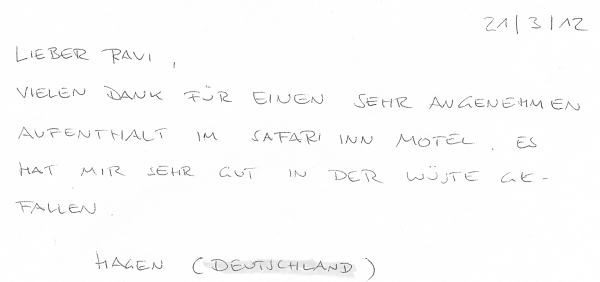 21/3/12
LIEBER RAVI,
VIELEN DANK FÜR EINEN SEHR ANGENEHMEN
AUFENTHALT IM SAFARI INN MOTEL. ES
HAT MIR SEHR GUT IN DER WÜSTE GE-
FALLEN.
HAGEN (DEUTSCHLAND)